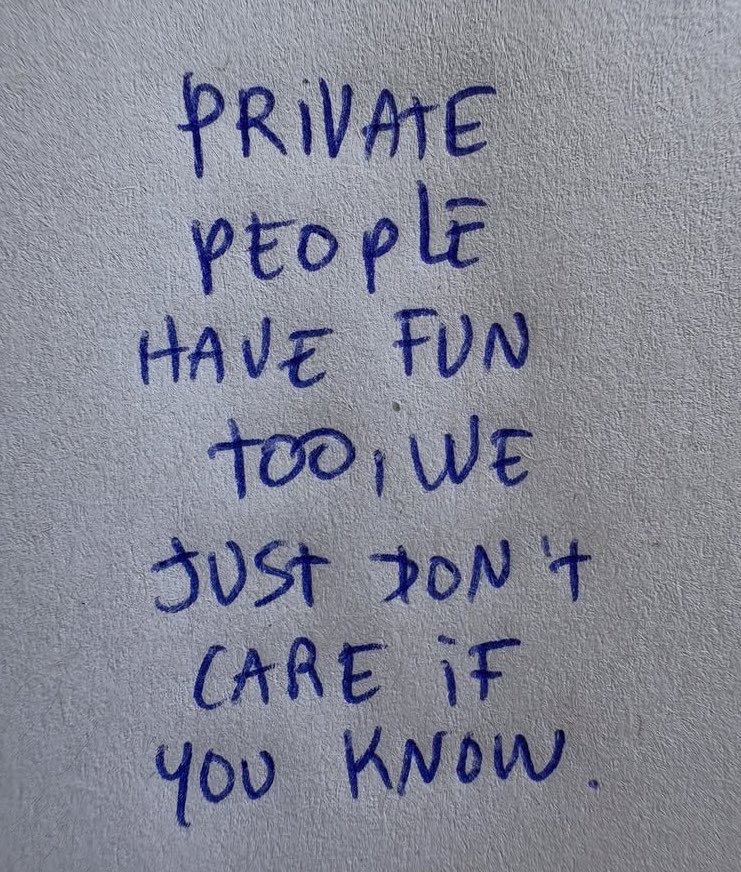 PRiVATE
PEOPLE
HAVE FUN
TOO, WE
JUST DON'T
CARE iF
YOU KNOW.